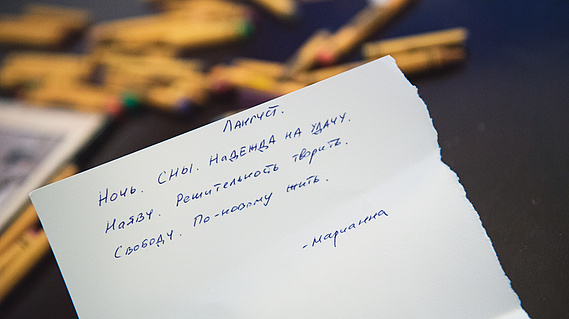 Лангуст.
Ночь. Сны. Надежда на удачу.
Наяву. Решительность творить.
Свободу. По-новому жить.
-Марианна